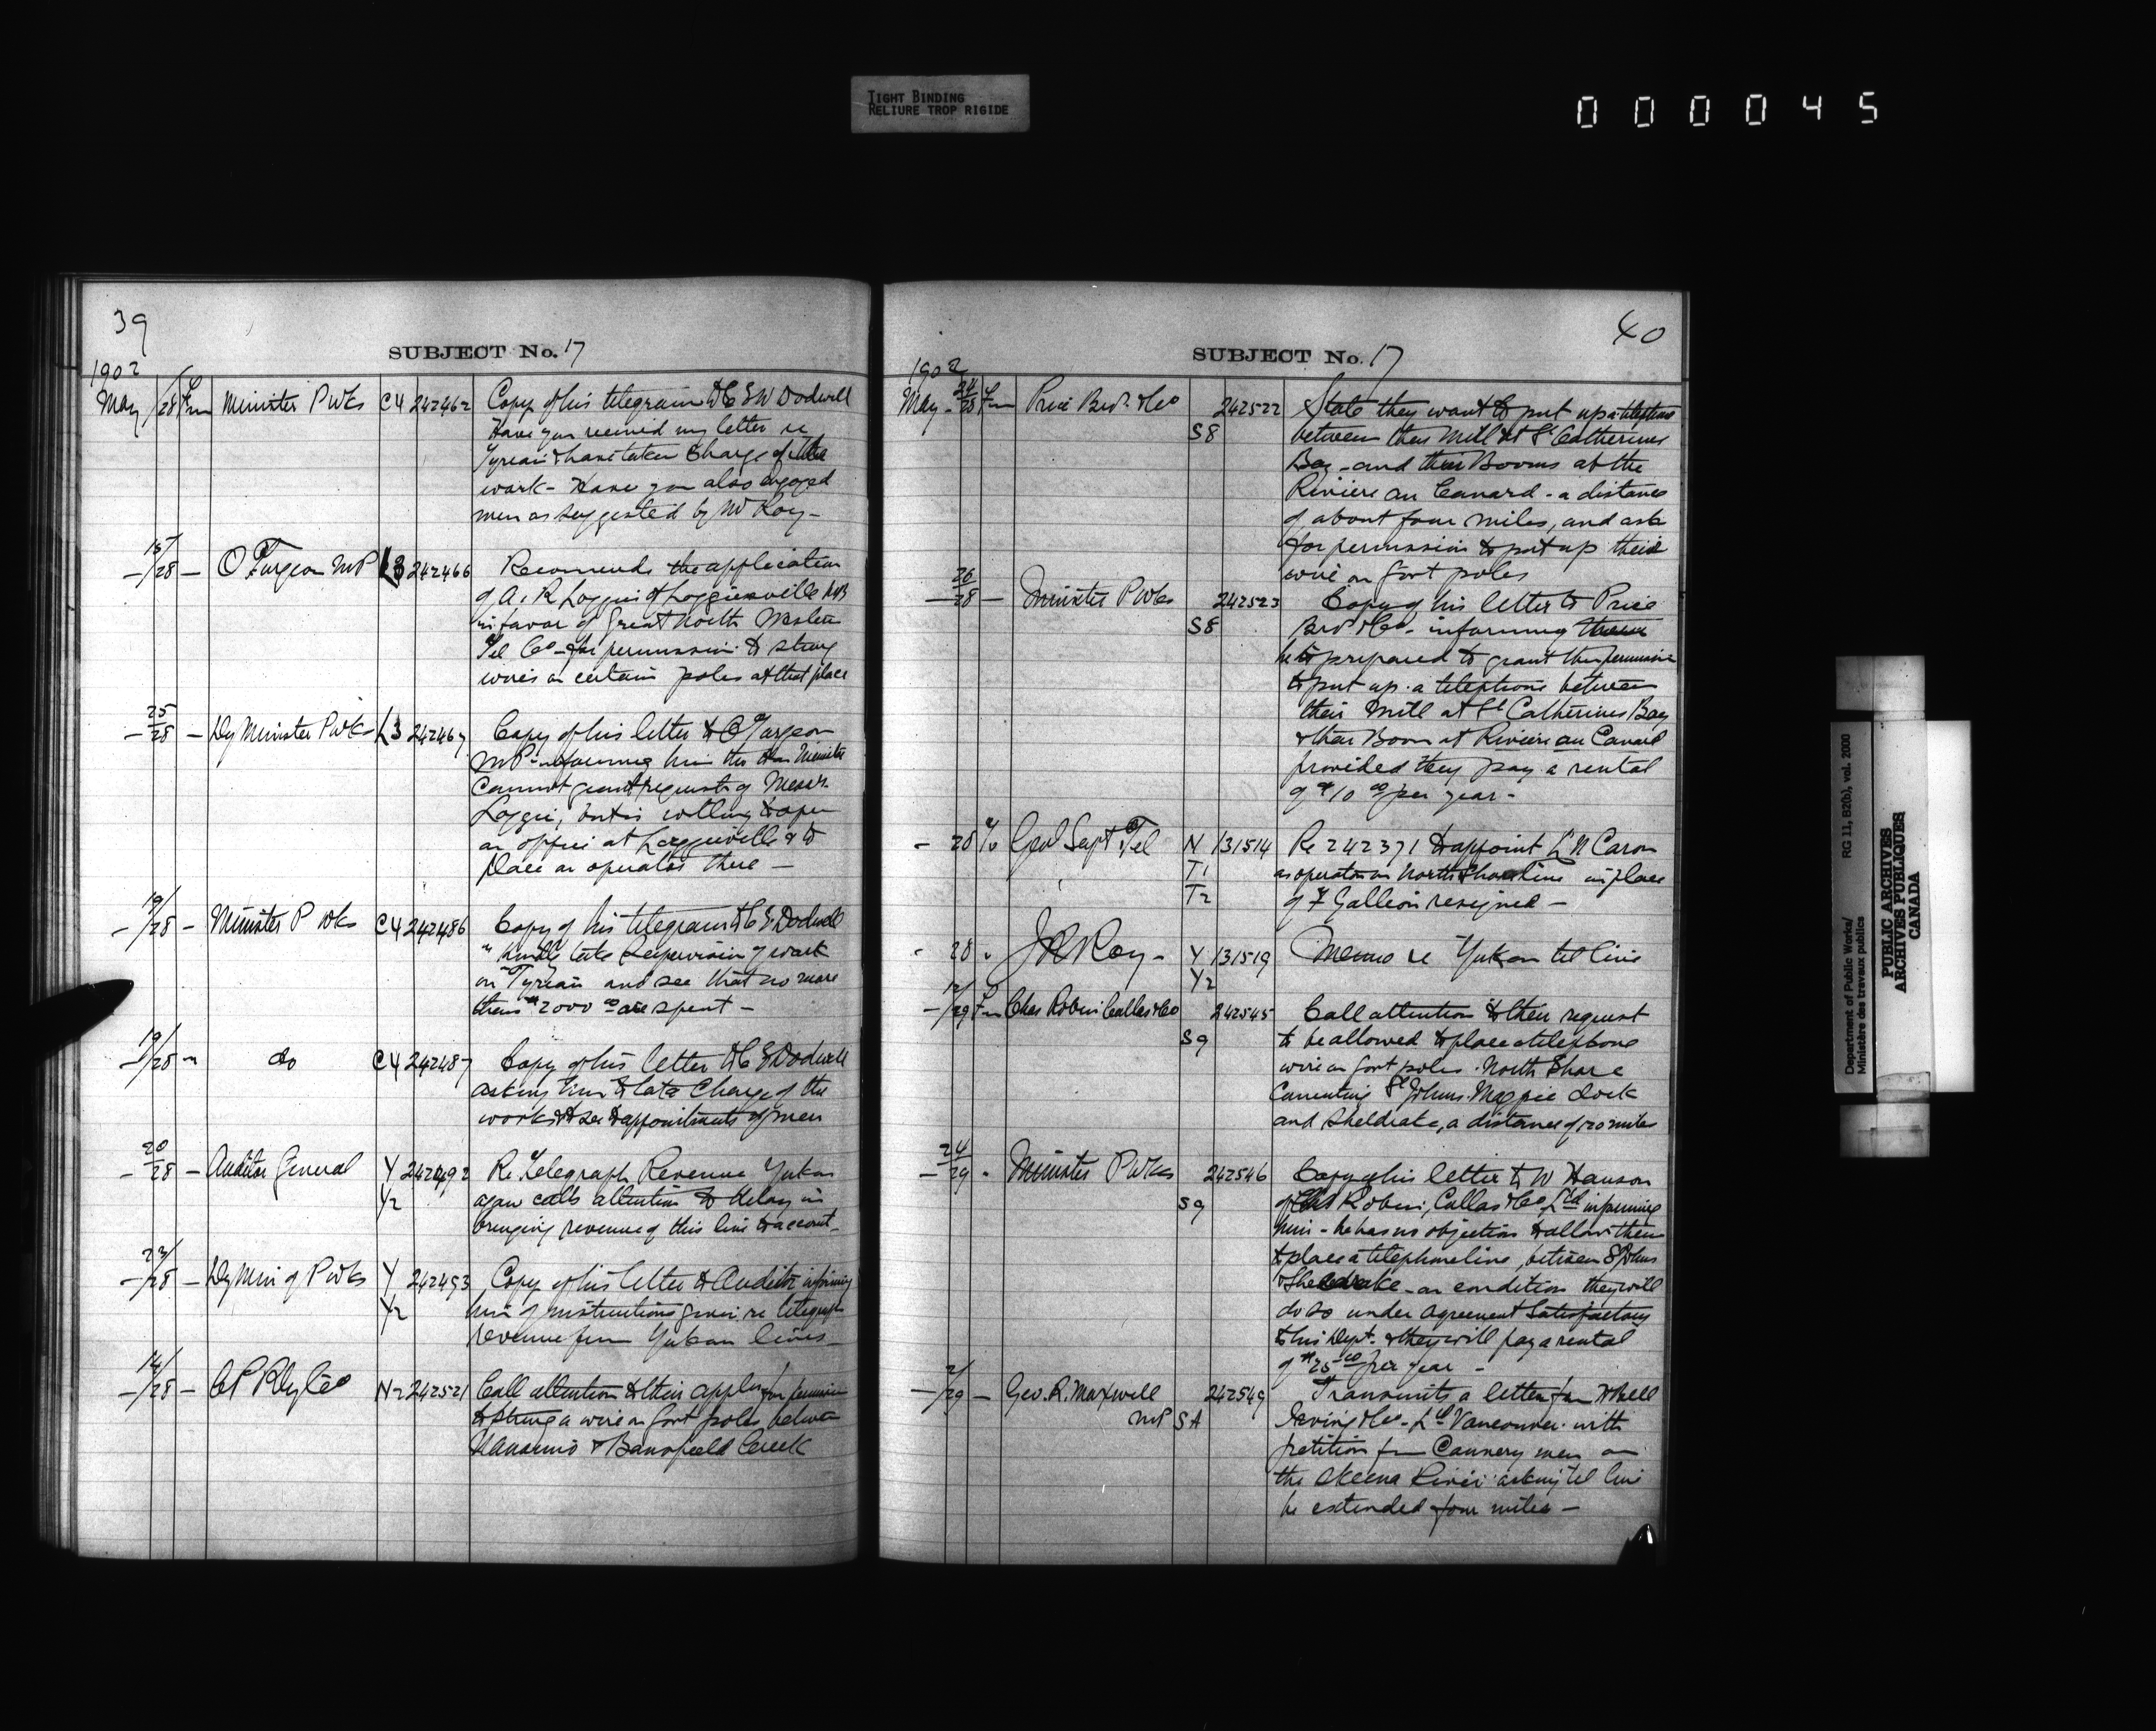 TIGHT BINDING
RELIURE TROP RIGIDE
000045
39
SUBJECT No. 17
1902
May /28 Fm Minister P Wks C4 242462 Copy of his telegram to C E W Dodwell
Have you received my letter re
Tyrian & have taken charge of the
work - Have you also engaged
men as suggested by Mr Roy -
- 15/28 - O Turgeon MP L3 242466 Recommends the application
of A. & R Loggie of Loggieville NB
in favor of Great North Western
Tel Co - for permission to string
wires on certain poles at that place
- 25/28 - Dy Minister P Wks L3 242467 Copy of his letter to O Turgeon
MP - informing him the Hon Minister
cannot grant request of Messrs
Loggie, but is willing to open
an office at Loggieville & to
place an operator there -
- 19/28 - Minister P Wks C4 242486 Copy of his telegram to C E Dodwell
" Kindly take supervision of work
on Tyrian and see that no more
than $2000 00 are spent -
- 19/28 " do C4 242487 Copy of his letter to C E Dodwell
asking him to take charge of the
works & to see to appointments of men
- 20/28 - Auditor General Y 242492 Re Telegraph Revenue Yukon
Y2 again calls attention to delay in
bringing revenue of this line to account -
- 23/28 - Dy Min of P Wks Y 242493 Copy of his letter to Auditor informing
Y2 him of instructions given re telegraph
revenue from Yukon lines -
- 14/28 - CP Rly Co N2 242521 Call attention to their appln for permission
to string a wire on Govt poles between
Nanaimo & Banfield Creek
40
SUBJECT No. 17
1902
May 24/28 Fm Price Bros & Co 242522 State they want to put up a telephone
S8 between their Mill at St Catherines
Bay - and their Booms at the
Riviere au Canard - a distance
of about four miles, and ask
for permission to put up their
wire on Govt poles
- 26/28 - Minister P Wks 242523 Copy of his letter to Price
S8 Bros & Co - informing them
he is prepared to grant them permission
to put up a telephone between
their Mill at St Catherines Bay
& their Boom at Riviere au Canard
provided they pay a rental
of $10 00 per year -
- 28 To Genl Supt Tel N 131514 Re 242371 to appoint L N Caron
T1 as operator on North Shore line in place
T2 of F Gallion resigned -
- 28 " J R Roy - Y 131519 Memo re Yukon tel line
Y2
- 12/29 Fm Chas Robin Collas & Co 242545 Call attention to their request
S9 to be allowed to place a telephone
wire on Govt poles North Shore
connecting St Johns, Magpie dock
and Sheldrake, a distance of 20 miles
- 24/29 - Minister P Wks 242546 Copy of his letter to W Hanson
S9 of Chas Robin, Collas & Co, Ltd informing
him - he has no objection to allow them
to place a telephone line, between St Johns
& Sheldrake - on condition they will
do so under agreement satisfactory
to his Dept. & they will pay a rental
of $25 00 per year -
- 2/29 - Geo. R. Maxwell 242549 Transmits a letter from
MP SA Irving & Co - Ld Vancouver with
petition from Cannery men on
the Skeena River asking tel line
be extended four miles -
Department of Public Works/ RG 11, B2(b), vol. 2000
Ministère des travaux publics
PUBLIC ARCHIVES
ARCHIVES PUBLIQUES
CANADA